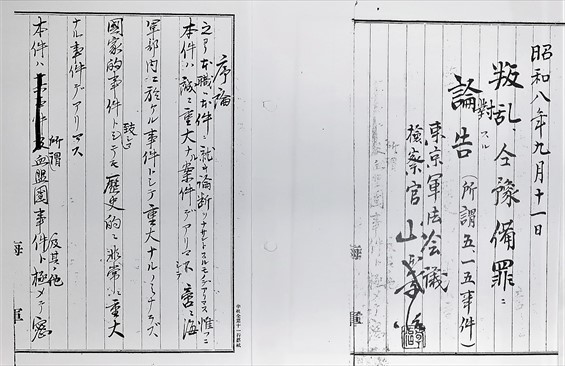 昭和八年九月十一日
叛乱、仝豫備罪ニ
對スル
論告(所謂五一五事件)
東京軍法会議
検察官 山本孝治
海軍
序論
之ヨリ本職ハ本件ニ就キ論断
本件ハ誠ニ重大ナル案件デアリマス 啻ニ海
軍部内ニ於ケル事件トシテ重大ナルノミナラズ
國家的事件トシテモ歴史的ニ非常ニ重大
ナル事件デアリマス
本件ハ所謂血盟團事件及其ノ他ト極メテ密
海軍